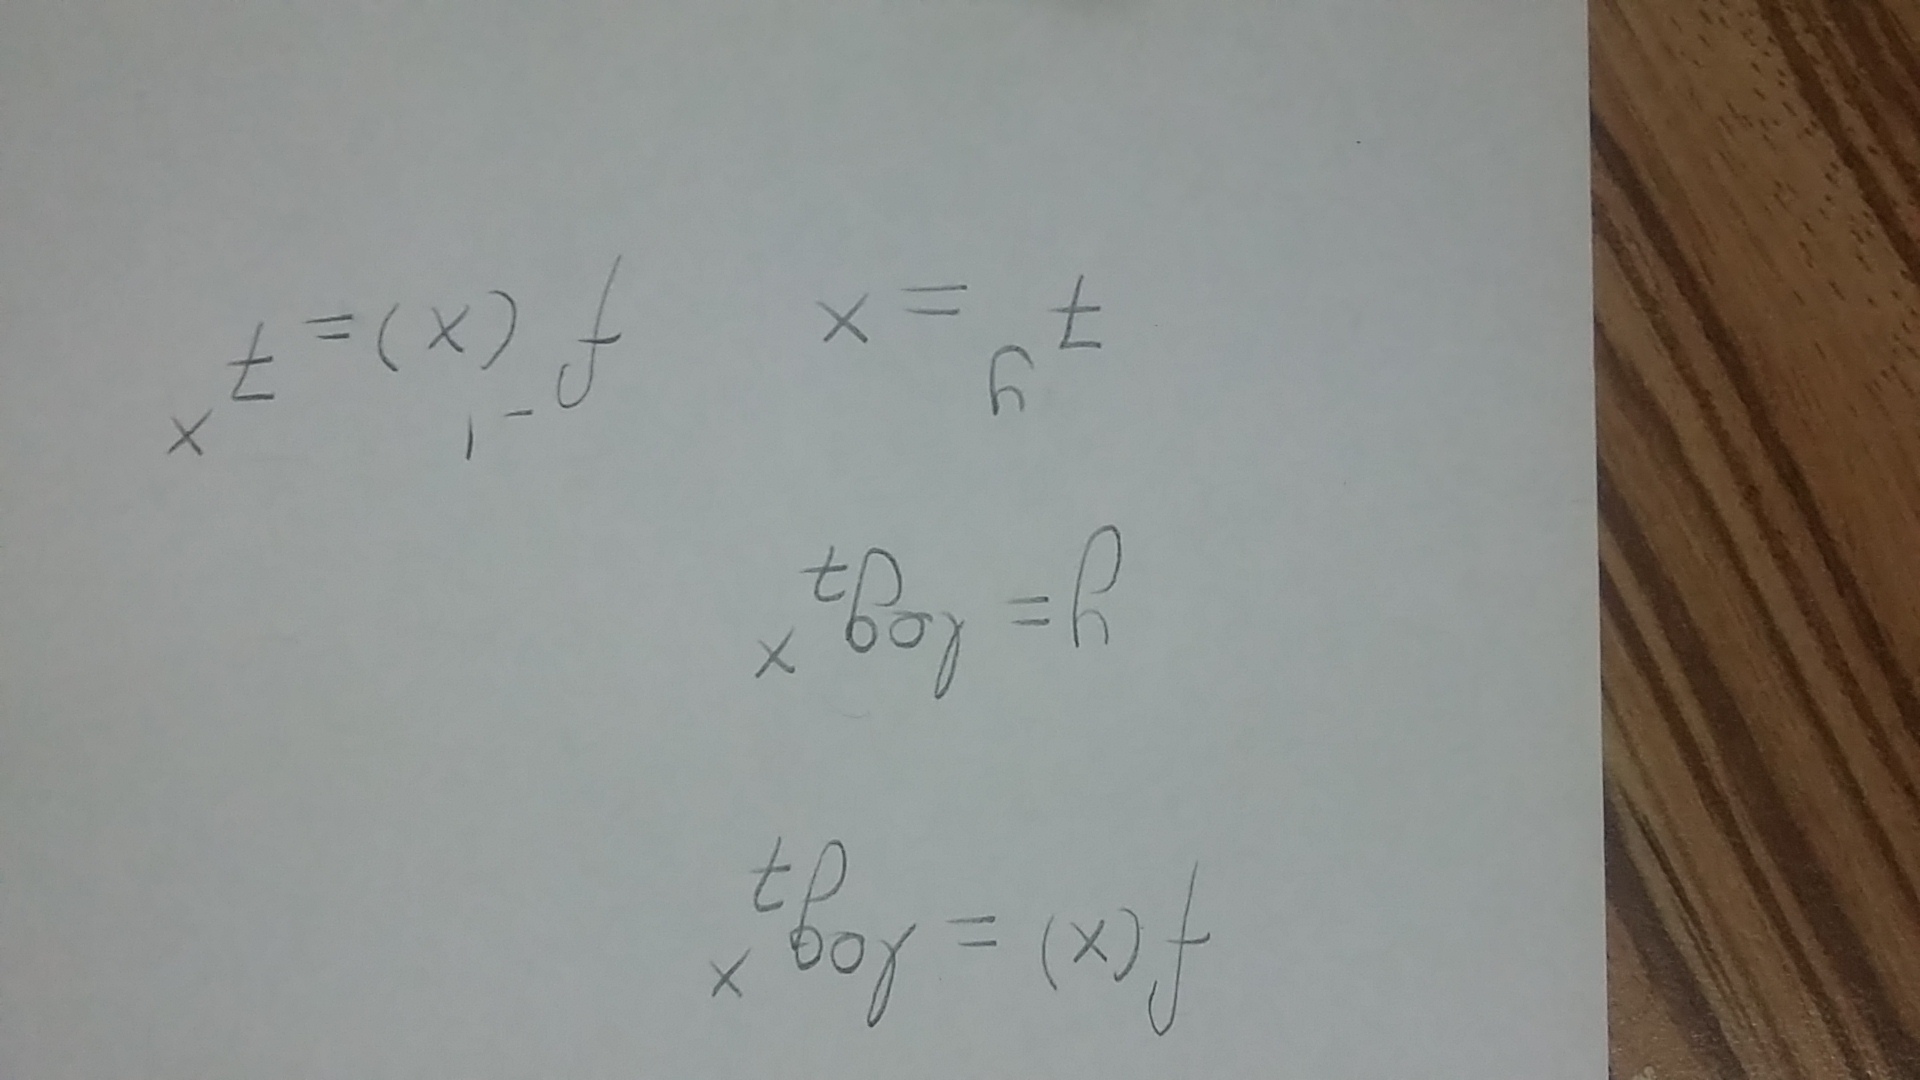 f(x) = log₇ x
y = log₇ x
7^y = x
f^-1(x) = 7^x